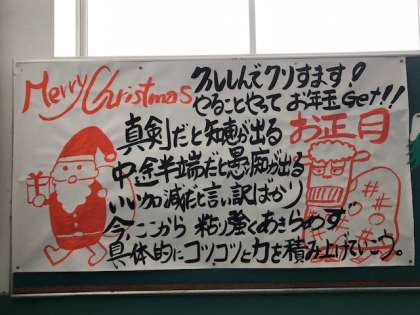 Merry Christmas
クルしんでクリすます！
やることやって お年玉Get!!
お正月
真剣だと知恵が出る
中途半端だと愚痴が出る
いい加減だと言い訳ばかり
今、ここから 粘り強くあきらめず
具体的にコツコツと力を積み上げていこう。